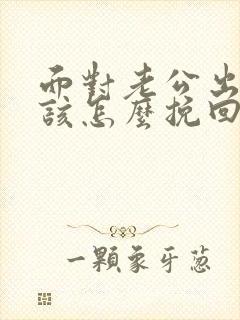 面對老公出
該怎麼挽回
一顆象牙蔥